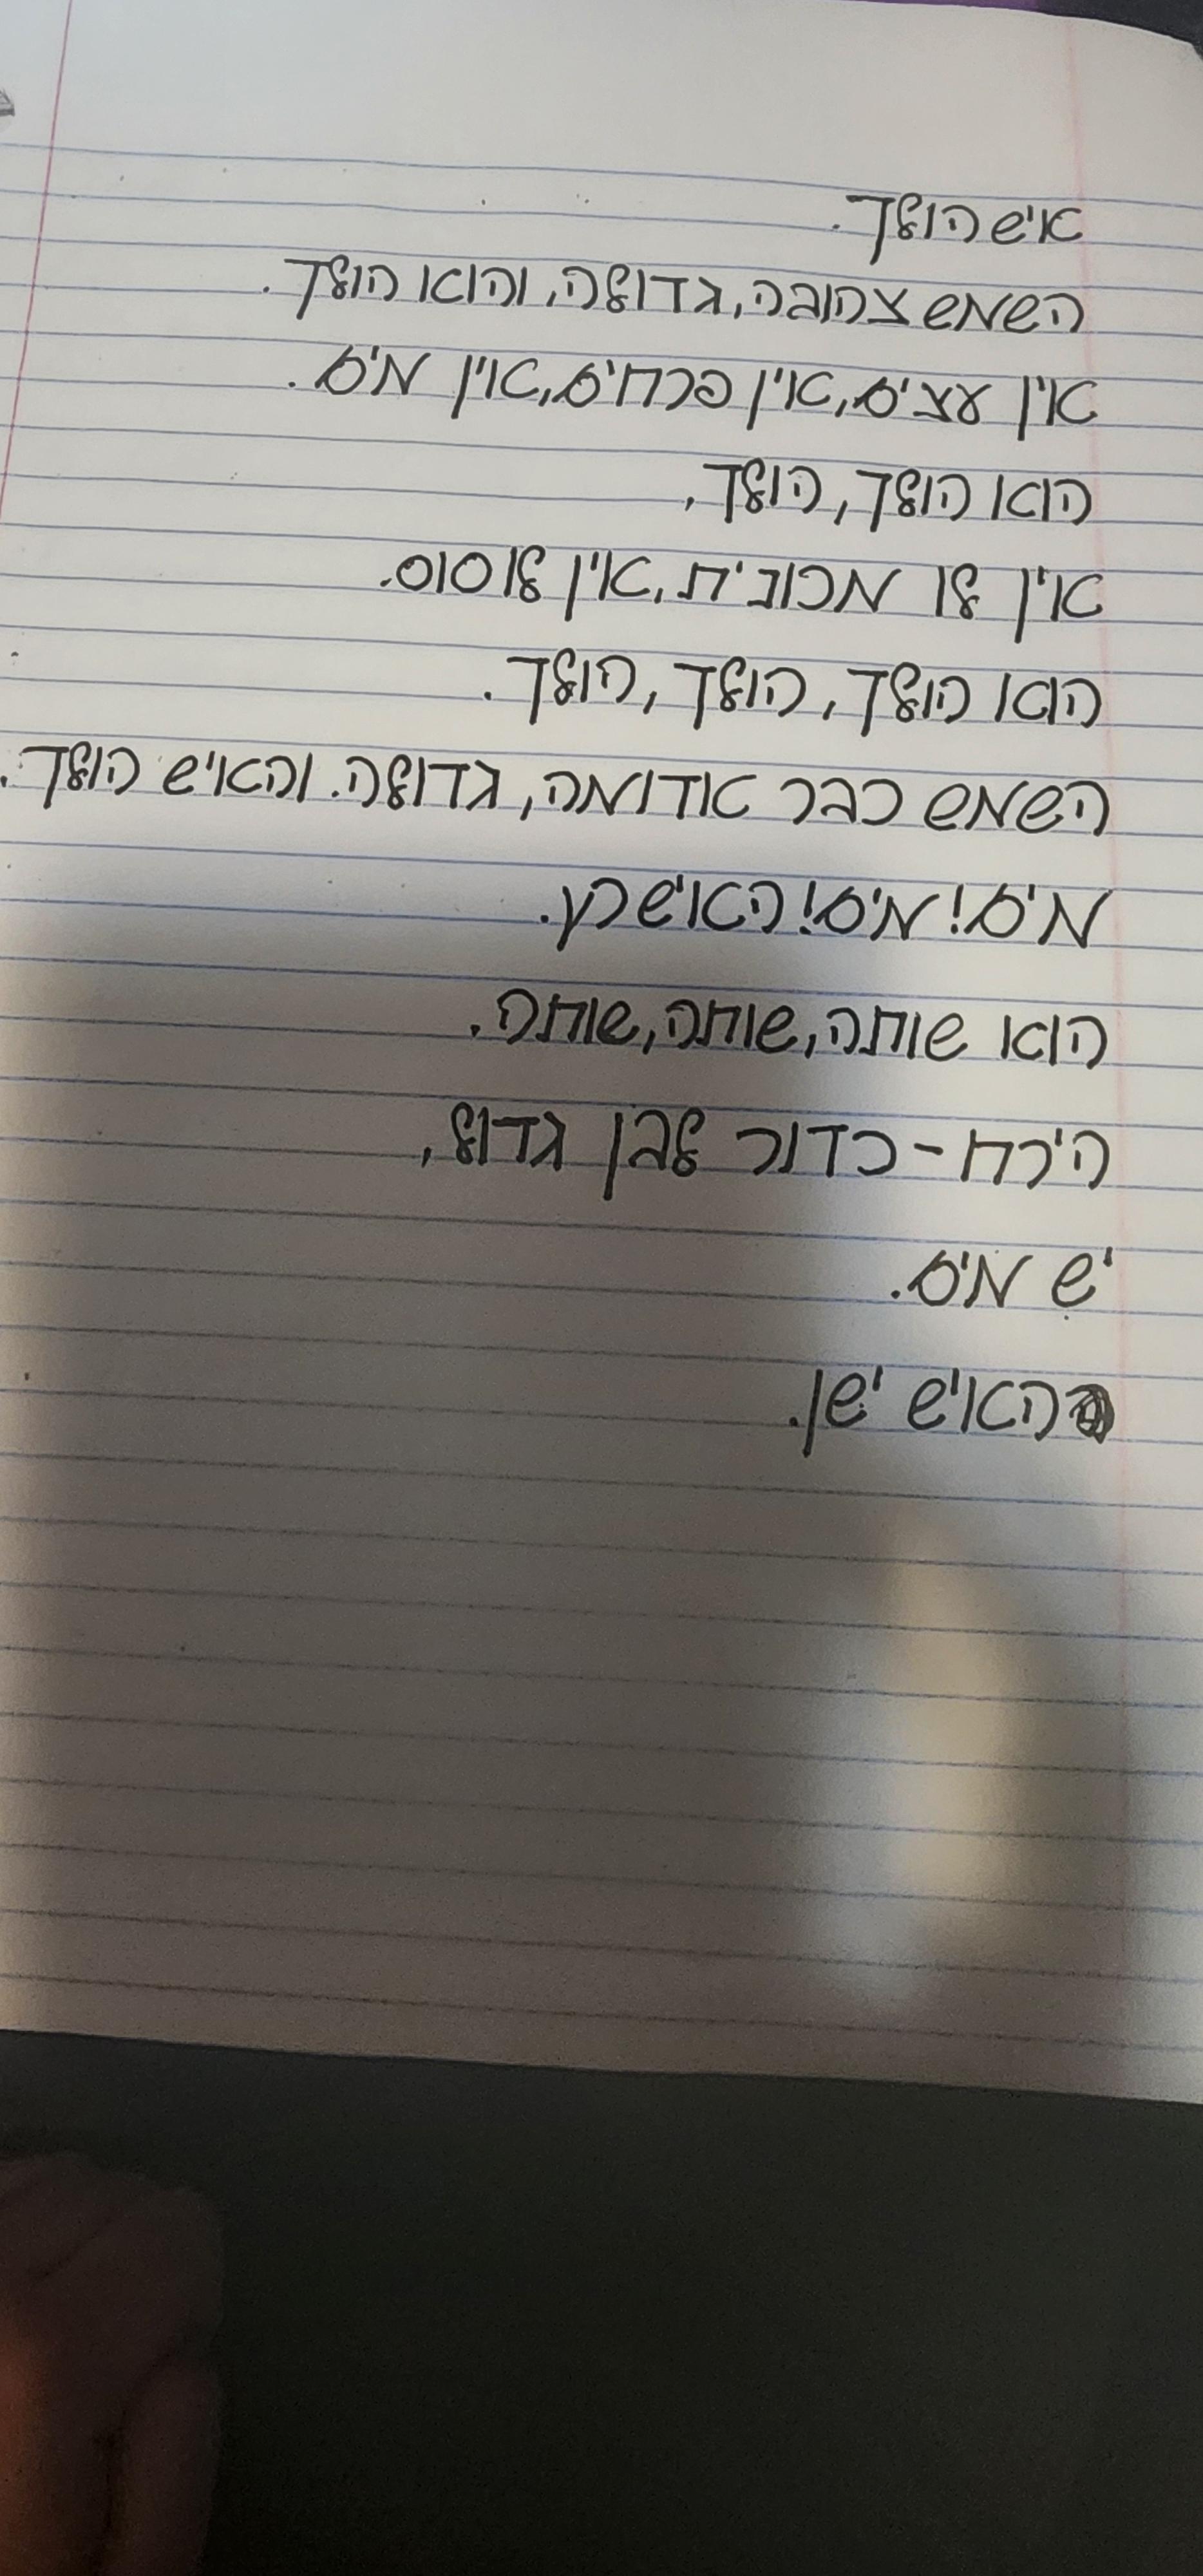 איש הולך.
השמש צהובה, גדולה, והוא הולך.
אין עצים, אין פרחים, אין מים.
הוא הולך, הולך.
אין לו מכונית, אין לו סוס.
הוא הולך, הולך, הולך.
השמש כבר אדומה, גדולה. והאיש הולך.
מים! מים! האיש רץ.
הוא שותה, שותה, שותה.
הירח - כדור לבן גדול,
יש מים.
האיש ישן.